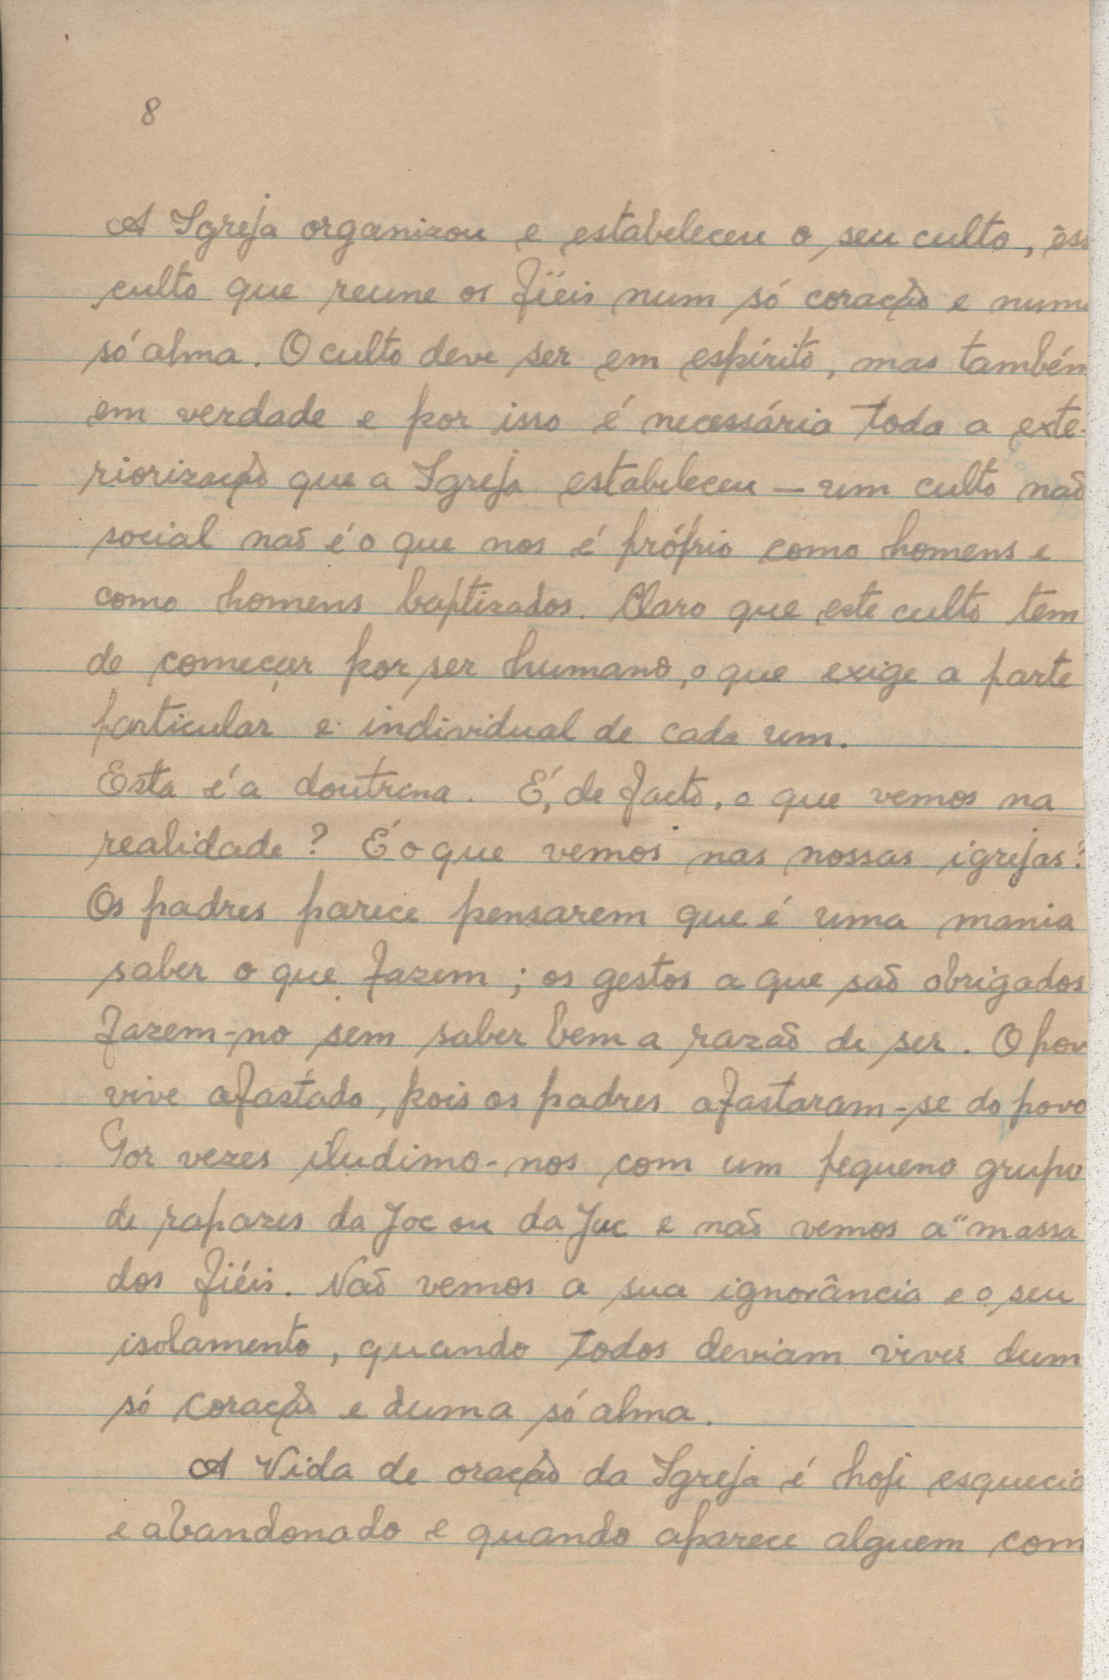 8
A Igreja organizou e estabeleceu o seu culto, ês
culto que reune os fiéis num só coração e numa
só alma. O culto deve ser em espírito, mas também
em verdade e por isso é necessária toda a exte-
riorização que a Igreja estabeleceu — um culto não
social não é o que nos é próprio como homens e
como homens baptizados. Claro que este culto tem
de começar por ser humano, o que exige a parte
particular e individual de cada um.
Esta é a doutrina. É, de facto, o que vemos na
realidade? É o que vemos nas nossas igrejas?
Os padres parece pensarem que é uma mania
saber o que fazem; os gestos a que são obrigados
fazem-no sem saber bem a razão de ser. O pov
vive afastado, pois os padres afastaram-se do povo
Por vezes iludimo-nos com um pequeno grupo
de rapazes da Joc ou da Juc e não vemos a "massa
dos fiéis. Não vemos a sua ignorância e o seu
isolamento, quando todos deviam viver dum
só coração e duma só alma.
A Vida de oração da Igreja é hoje esquecid
e abandonado e quando aparece alguem com